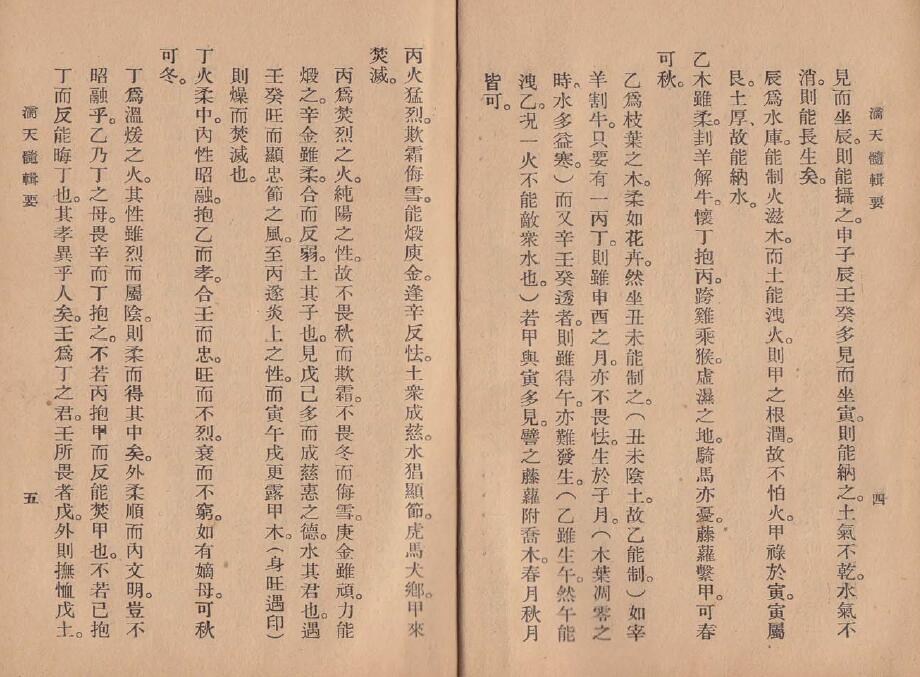 滴天髓輯要
四
見而坐辰。則能攝之。申子辰壬癸多見而坐寅。則能納之。土氣不乾。水氣不
消。則能長生矣。
辰爲水庫。能制火滋木。而土能洩火。則甲之根潤。故不怕火。甲祿於寅。寅屬
艮。土厚、故能納水。
乙木雖柔。刲羊解牛。懷丁抱丙。跨雞乘猴。虛濕之地。騎馬亦憂。藤蘿繫甲。可春
可秋。
乙爲枝葉之木。柔如花卉。然坐丑未能制之。（丑未陰土。故乙能制。）如宰
羊割牛。只要有一丙丁。則雖申酉之月。亦不畏怯。生於子月。（木葉凋零之
時、水多益寒。）而又辛壬癸透者。則雖得午。亦難發生。（乙雖生午。然午能
洩乙。况一火不能敵衆水也。）若甲與寅多見。譬之藤蘿附喬木。春月秋月
皆可。
丙火猛烈。欺霜侮雪。能煅庚金。逢辛反怯。土衆成慈。水猖顯節。虎馬犬鄉。甲來
焚滅。
丙爲焚烈之火。純陽之性。故不畏秋而欺霜。不畏冬而侮雪。庚金雖頑力能
煅之。辛金雖柔。合而反弱。土其子也。見戊己多而成慈惠之德。水其君也。遇
壬癸旺而顯忠節之風。至丙遂炎上之性。而寅午戌更露甲木。（身旺遇印）
則燥而焚滅也。
丁火柔中。內性昭融。抱乙而孝。合壬而忠。旺而不烈。衰而不窮。如有嫡母。可秋
可冬。
丁爲溫煖之火。其性雖烈而屬陰。則柔而得其中矣。外柔順而內文明。豈不
昭融乎。乙乃丁之母。畏辛而丁抱之。不若丙抱甲而反能焚甲也。不若己抱
丁而反能晦丁也。其孝異乎人矣。壬爲丁之君。壬所畏者戊。外則撫恤戊土。
滴天髓輯要
五